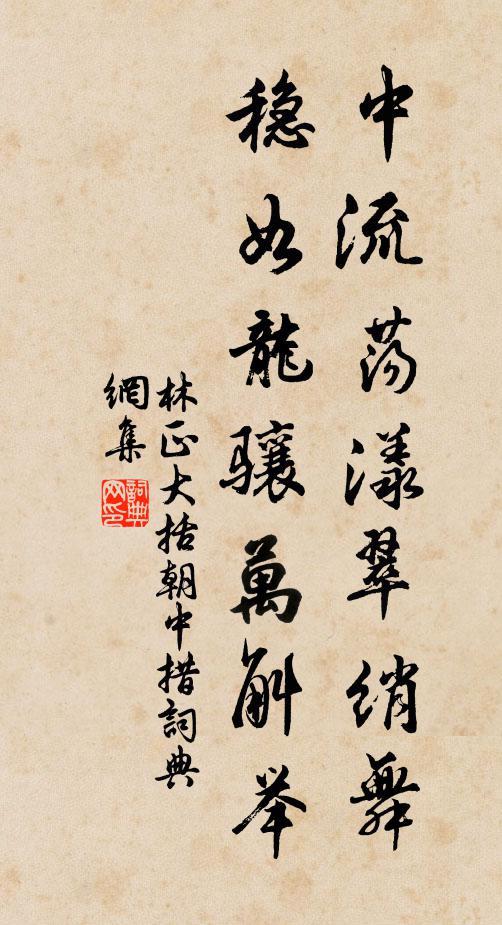 中流荡漾翠绡舞
稳如龍驤萬斛举
林正大括朝中措詞典
網集
詞典网印